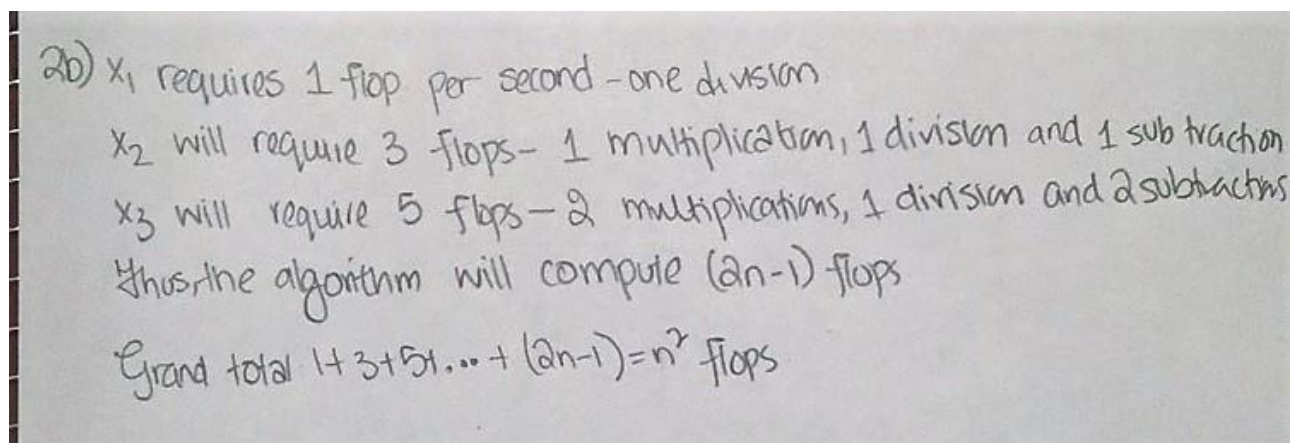 2b) x₁ requires 1 flop per second - one division
x₂ will require 3 flops - 1 multiplication, 1 division and 1 subtraction
x₃ will require 5 flops - 2 multiplications, 1 division and 2 subtractions
Thus, the algorithm will compute (2n-1) flops
Grand total 1+3+5+...+(2n-1)=n² flops